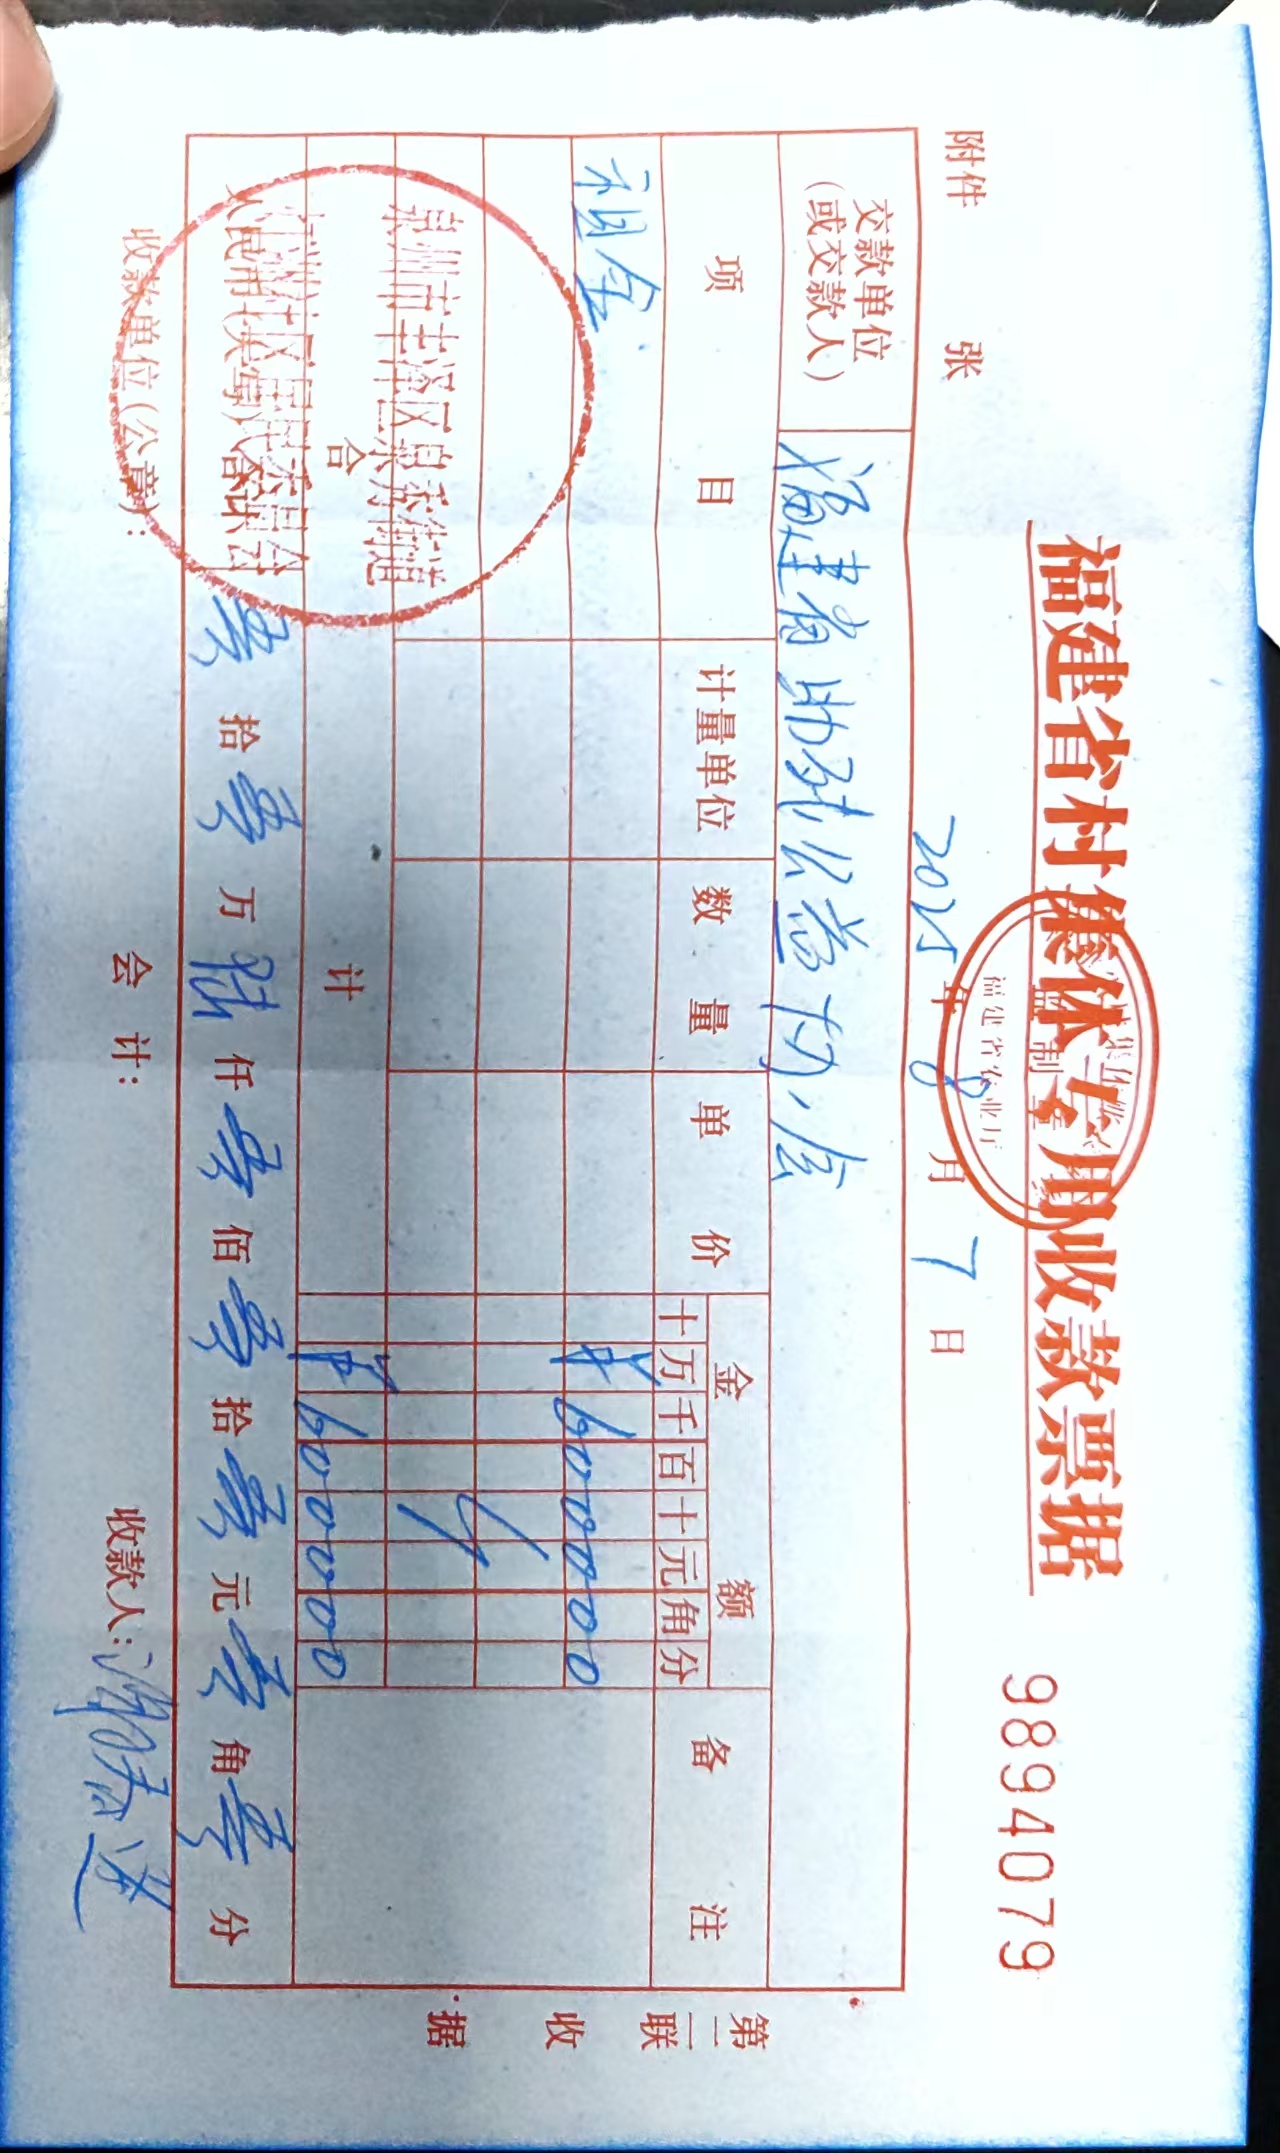 福建省村集体专用收款票据
9894079
福建省农业厅
监制章
附件 张
2025年8月7日
交款单位
(或交款人)
福建省助残公益协会
项目 计量单位 数量 单价 金额 备注
十万千百十元角分
租金 ¥600000
合计 ¥600000
人民币(大写) 零拾零万陆仟零佰零拾零元零角零分
泉州市丰泽区泉秀街道
社区居民委员会
收款单位(公章): 会计: 收款人:
第二联 收据